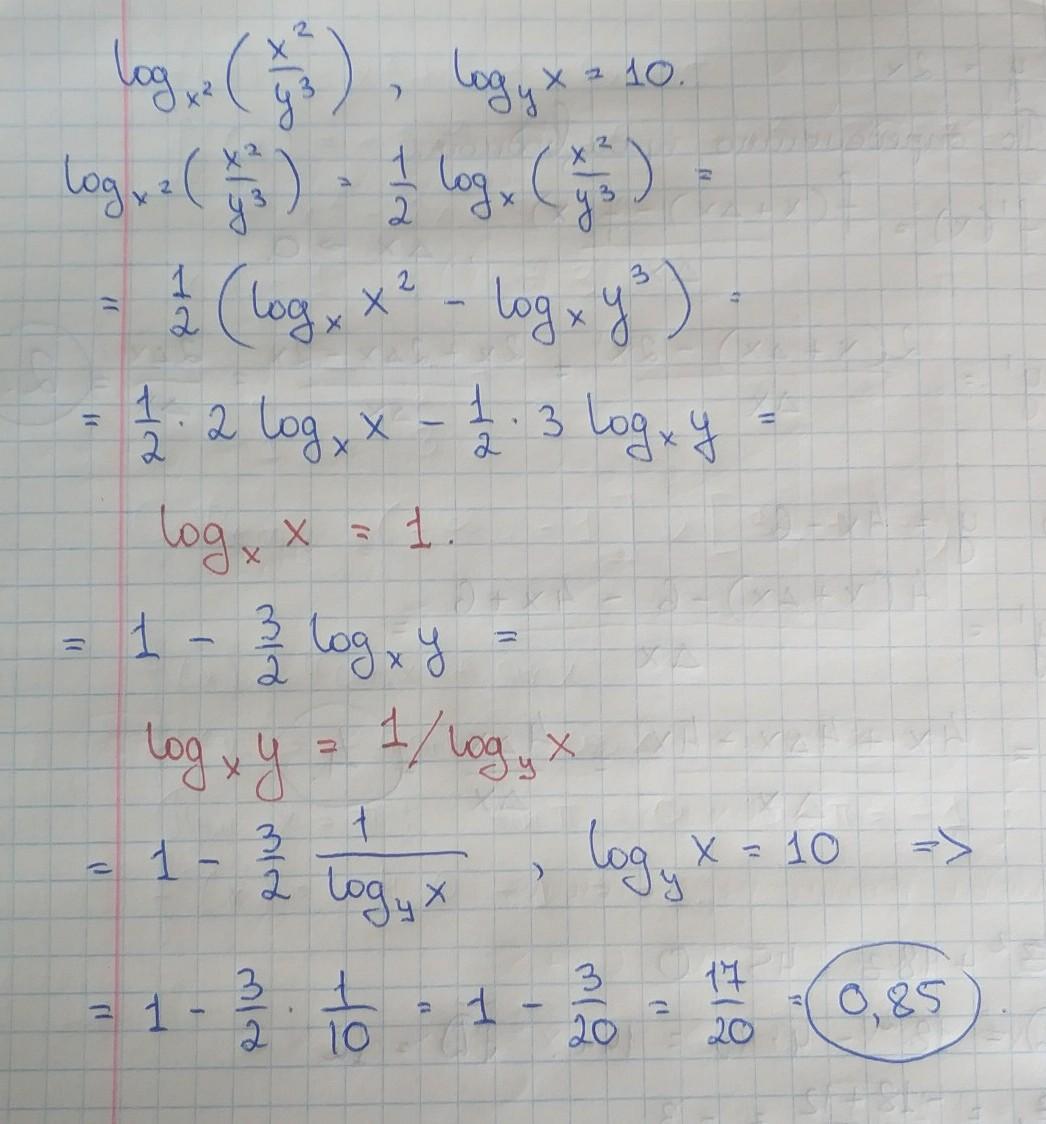 log_{x²}(x²/y³), log_y x = 10.
log_{x²}(x²/y³) = 1/2 log_x(x²/y³) =
= 1/2 (log_x x² - log_x y³) =
= 1/2 · 2 log_x x - 1/2 · 3 log_x y =
log_x x = 1.
= 1 - 3/2 log_x y =
log_x y = 1/log_y x
= 1 - 3/2 1/(log_y x), log_y x = 10 =>
= 1 - 3/2 · 1/10 = 1 - 3/20 = 17/20 = 0,85.